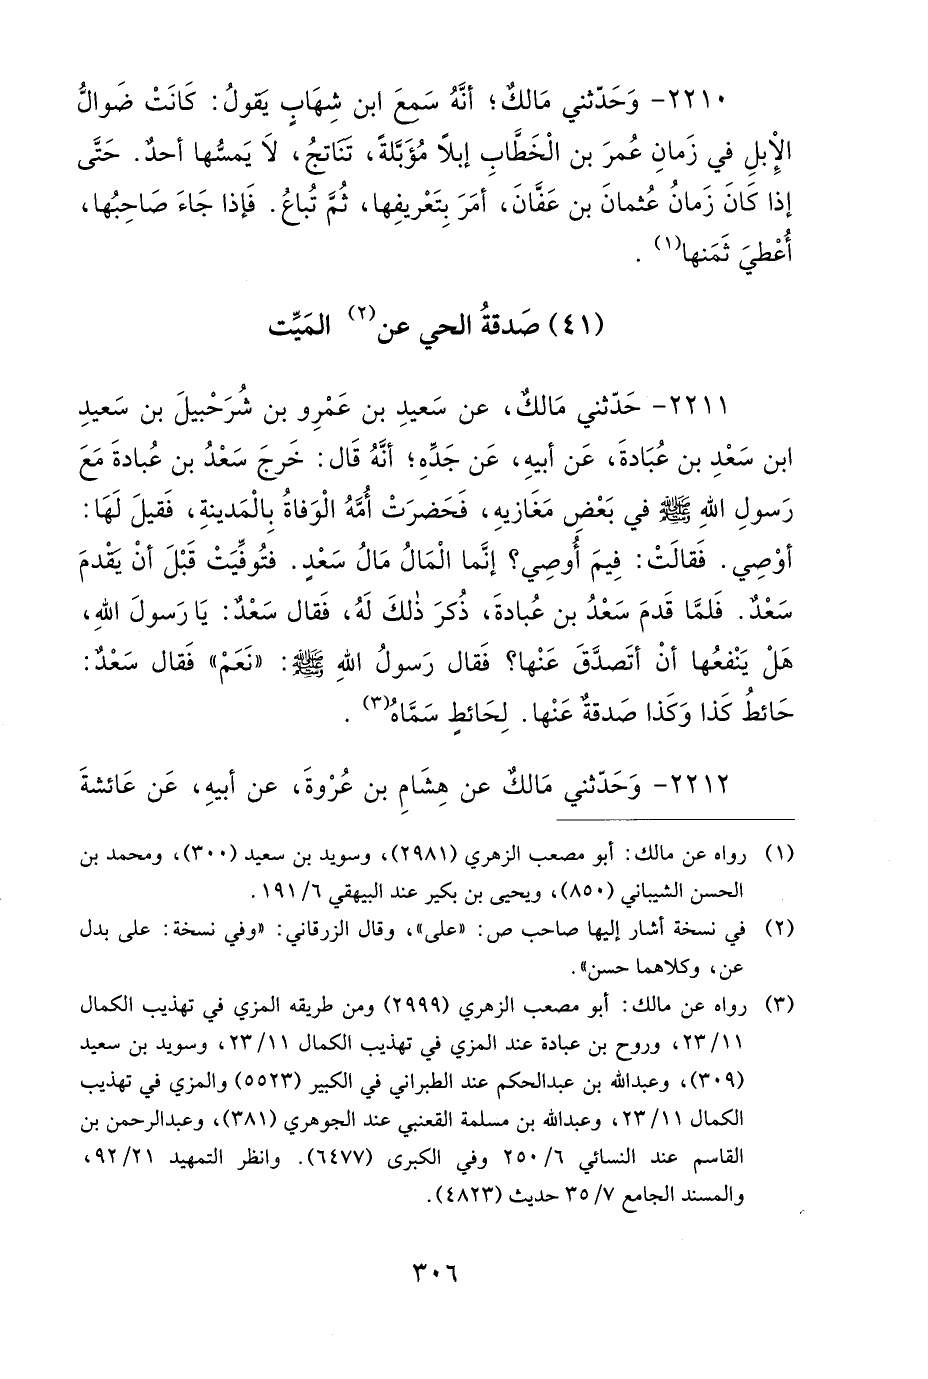 ٢٢١٠- وَحَدّثني مَالكٌ؛ أنَّهُ سَمعَ ابن شِهَابٍ يَقولُ: كَانَتْ ضَوالُّ
الإِبلِ في زَمانِ عُمرَ بن الْخَطَّابِ إبلاً مُؤَبَّلةً، تَنَاتجُ، لَا يَمسُّها أحدٌ. حَتَّى
إذا كَانَ زَمانُ عُثمانَ بن عَفَّانَ، أمَرَ بِتَعْريفِها، ثُمَّ تُباعُ. فَإذا جَاءَ صَاحبُها،
أُعْطيَ ثَمَنها(١) .
(٤١) صَدقةُ الحي عن(٢) المَيِّت
٢٢١١- حَدّثني مَالكٌ، عن سَعيدِ بن عَمْرِو بن شُرَحْبيلَ بن سَعيدِ
ابن سَعْدِ بن عُبَادةَ، عَن أبيهِ، عَن جَدِّهِ؛ أنَّهُ قَال: خَرجَ سَعْدُ بن عُبادةَ مَعَ
رَسولِ اللهِ ﷺ في بَعْضِ مَغَازيهِ، فَحَضرَتْ أُمَّهُ الْوَفاةُ بِالْمَدينةِ، فَقيلَ لَهَا:
أوْصِي. فَقالَتْ: فِيمَ أُوصِي؟ إنَّما الْمَالُ مَالُ سَعْدٍ. فتُوفِّيَتْ قَبْلَ أنْ يَقْدمَ
سَعْدٌ. فَلمَّا قَدمَ سَعْدُ بن عُبادةَ، ذُكرَ ذٰلكَ لَهُ، فَقال سَعْدٌ: يَا رَسولَ اللهِ،
هَلْ يَنْفعُها أنْ أتَصدَّقَ عَنْها؟ فَقال رَسولُ اللهِ ﷺ: «نَعَمْ» فَقال سَعْدٌ:
حَائطُ كَذا وَكَذا صَدقةٌ عَنْها. لِحَائطٍ سَمَّاهُ(٣) .
٢٢١٢- وَحَدّثني مَالكٌ عن هِشَامِ بن عُرْوةَ، عن أبيهِ، عَن عَائشةَ
(١) رواه عن مالك: أبو مصعب الزهري (٢٩٨١)، وسويد بن سعيد (٣٠٠)، ومحمد بن
الحسن الشيباني (٨٥٠)، ويحيى بن بكير عند البيهقي ٦/ ١٩١ .
(٢) في نسخة أشار إليها صاحب ص: «على»، وقال الزرقاني: «وفي نسخة: على بدل
عن، وكلاهما حسن».
(٣) رواه عن مالك: أبو مصعب الزهري (٢٩٩٩) ومن طريقه المزي في تهذيب الكمال
١١/ ٢٣، وروح بن عبادة عند المزي في تهذيب الكمال ١١/ ٢٣، وسويد بن سعيد
(٣٠٩)، وعبدالله بن عبدالحكم عند الطبراني في الكبير (٥٥٢٣) والمزي في تهذيب
الكمال ١١/ ٢٣، وعبدالله بن مسلمة القعنبي عند الجوهري (٣٨١)، وعبدالرحمن بن
القاسم عند النسائي ٦/ ٢٥٠ وفي الكبرى (٦٤٧٧). وانظر التمهيد ٢١/ ٩٢،
والمسند الجامع ٧/ ٣٥ حديث (٤٨٢٣).
٣٠٦